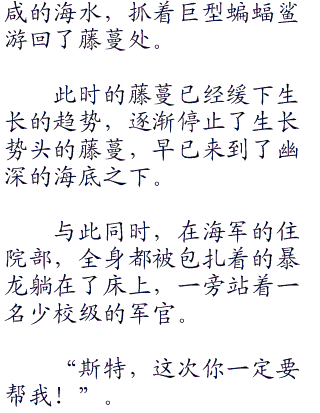 咸的海水，抓着巨型蝙蝠鲨
游回了藤蔓处。
此时的藤蔓已经缓下生
长的趋势，逐渐停止了生长
势头的藤蔓，早已来到了幽
深的海底之下。
与此同时，在海军的住
院部，全身都被包扎着的暴
龙躺在了床上，一旁站着一
名少校级的军官。
“斯特，这次你一定要
帮我！”。